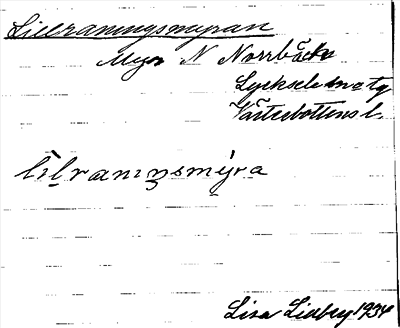 Lillraningsmyran
Myr N Norrbäck
Lycksele
Västerbottens l.
lìlraniŋsmýra
Lisa Lidberg 1934